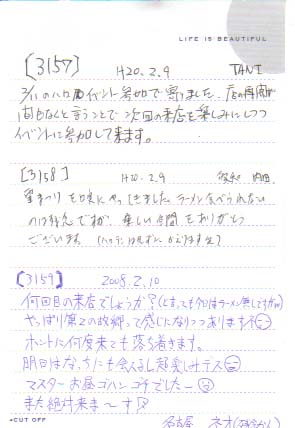 LIFE IS BEAUTIFUL
[3157] H20.2.9 TANI
2/11のハロ用イベント参加で寄りました. 店の再開が
間もなくと言うことで次回の来店を楽しみにしつつ
イベントに参加して来ます。
[3158] H20.2.9
星まつりを見にやってきました ラーメン食べられない
のは残念ですが、楽しい時間をありがとう
ございます
[3159] 2008.2.10
何回目の来店でしょうか?(と言っても今回はラーメン無しですが)
やっぱり第2の故郷って感じになりつつあります
ホントに何度来ても落ち着きます。
明日はなっちにも会えるし超楽しみデス
マスターお昼ゴハンゴチでしたー
また絶対来まーす!
•CUT OFF 名古屋 ネオ